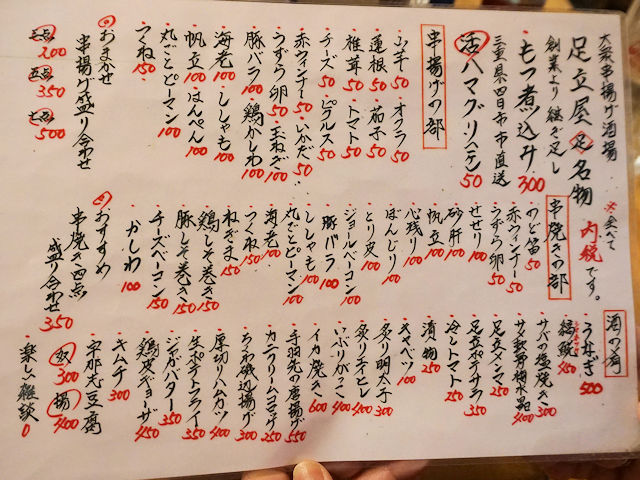 大衆串揚げ酒場
足立屋 足 名物
創業より継ぎ足し
・もつ煮込み 300
三重県四日市市直送
活ハマグリ 一ケ 50
※全て内税です。
串揚げの部
・山芋 50
・オクラ 50
・蓮根 50
・茄子 50
・椎茸 50
・トマト 50
・チーズ 50
・ピクルス 50
・赤ウィンナー 50
・いかだ 50
・うずら卵 50
・玉ねぎ 100
・豚バラ 100
・鶏かしわ 100
・海老 100
・ししゃも 100
・帆立 100
・はんぺん 100
・丸ごとピーマン 100
・つくね 150
おまかせ
串揚げ盛り合わせ
三点 200
五点 350
七点 500
串焼きの部
・のど笛 50
・赤ウィンナー 50
・うずら卵 50
・せせり 100
・砂肝 100
・帆立 100
・心残り 100
・ぼんじり 100
・とり皮 100
・ジョルベーコン 100
・豚バラ 100
・ししゃも 100
・丸ごとピーマン 100
・海老 100
・つくね 150
・ねぎま 150
・鶏しそ巻き 150
・豚しそ巻き 150
・チーズベーコン 150
・かしわ 100
おすすめ
串焼き四点
盛り合わせ 350
酒の肴
・うなぎ 500
・塩鯨 450
・サバの塩焼き 300
・サメ軟骨梅水晶 400
・足立メンマ 250
・足立ポテサラ 250
・冷しトマト 250
・漬物 250
・キャベツ 100
・炙り明太子 300
・炙りエイヒレ 400
・いぶりがっこ 400
・イカ焼き 600
・手羽先の唐揚げ 550
・カニクリームコロッケ 250
・ちくわ磯辺揚げ 300
・厚切りハムカツ 400
・生ポテトフライ 350
・ジャガバター 350
・鶏皮ギョーザ 450
・キムチ 300
・宇那志豆腐
奴 300
揚 400
・楽しい雑談 0